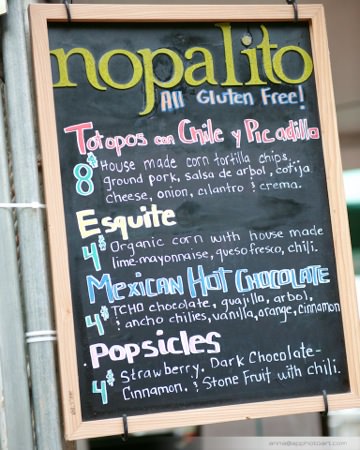 nopalito
All Gluten Free!
Totopos con Chile y Picadillo
8$ House made corn tortilla chips,
ground pork, salsa de arbol, cotija
cheese, onion, cilantro & crema.
Esquite
4$ Organic corn with house made
lime-mayonnaise, queso fresco, chili.
Mexican Hot Chocolate
4$ TCHO chocolate, guajillo, arbol,
& ancho chilies, vanilla, orange, cinnamon
Popsicles
4$ Strawberry. Dark Chocolate-
Cinnamon. & Stone Fruit with chili.
anna@apphotoart.com